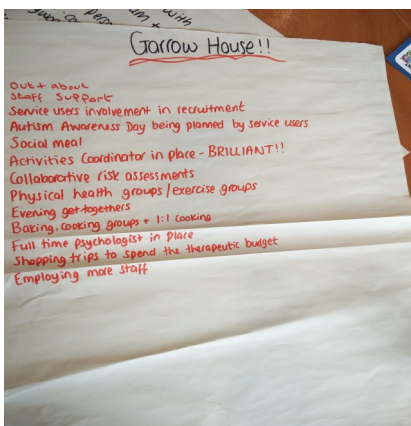 with
Garrow House!!
Out + about
Staff Support
Service users involvement in recruitment
Autism Awareness Day being planned by service users
Social meal
Activities Coordinator in place - BRILLIANT!!
Collaborative risk assessments
Physical health groups / exercise groups
Evening get-togethers
Baking, cooking groups + 1:1 cooking
Full time Psychologist in place
Shopping trips to spend the therapeutic budget
Employing more staff